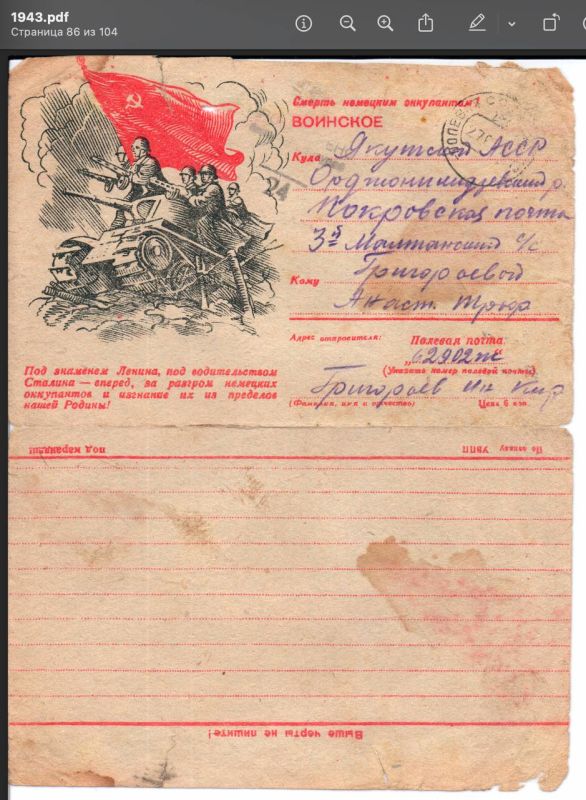 1943.pdf
Страница 86 из 104
Смерть немецким оккупантам!
ВОИНСКОЕ
24
Куда Якутская АССР
Орджоникидзевский р.
Покровская почта
3й Малтанский с/с
Кому Григорьевой
Анаст.
Адрес отправителя: Полевая почта:
62902
(Укажите номер полевой почты)
Григорьев
(Фамилия, имя и отчество) Цена 6 коп.
Под знаменем Ленина, под водительством
Сталина — вперед, за разгром немецких
оккупантов и изгнание их из пределов
нашей Родины!
под карандаш УВПП По заказу
Выше черты не пишите!